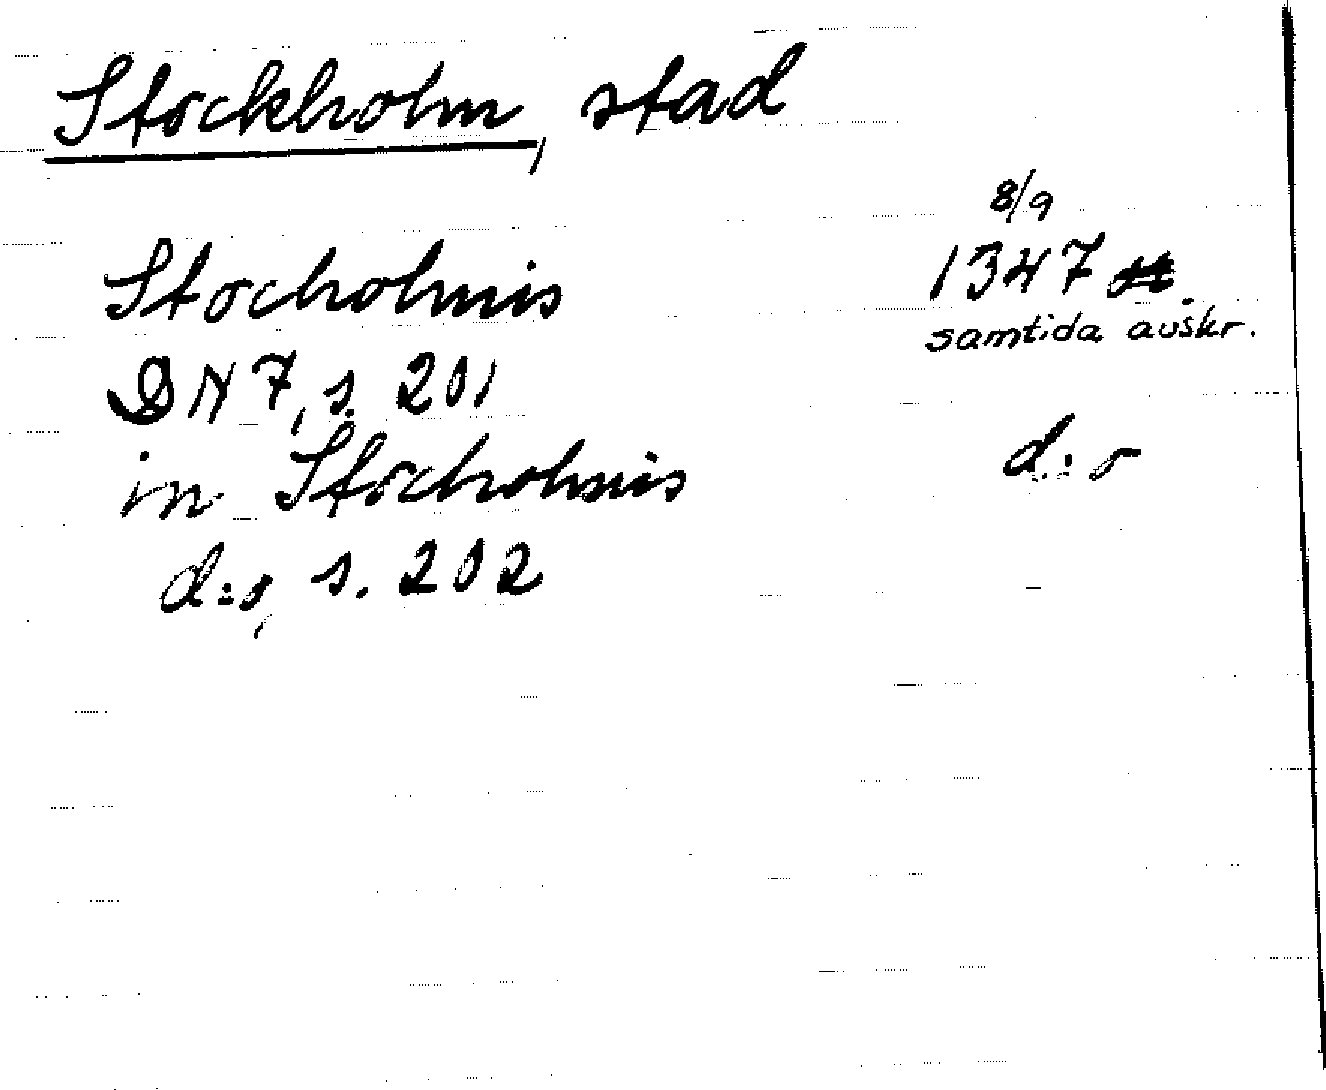 Stockholm, stad
8/9
Stocholmis 1347
samtida avskr.
DN 7, s. 201
in Stocholmis d:o
d:o, s. 202